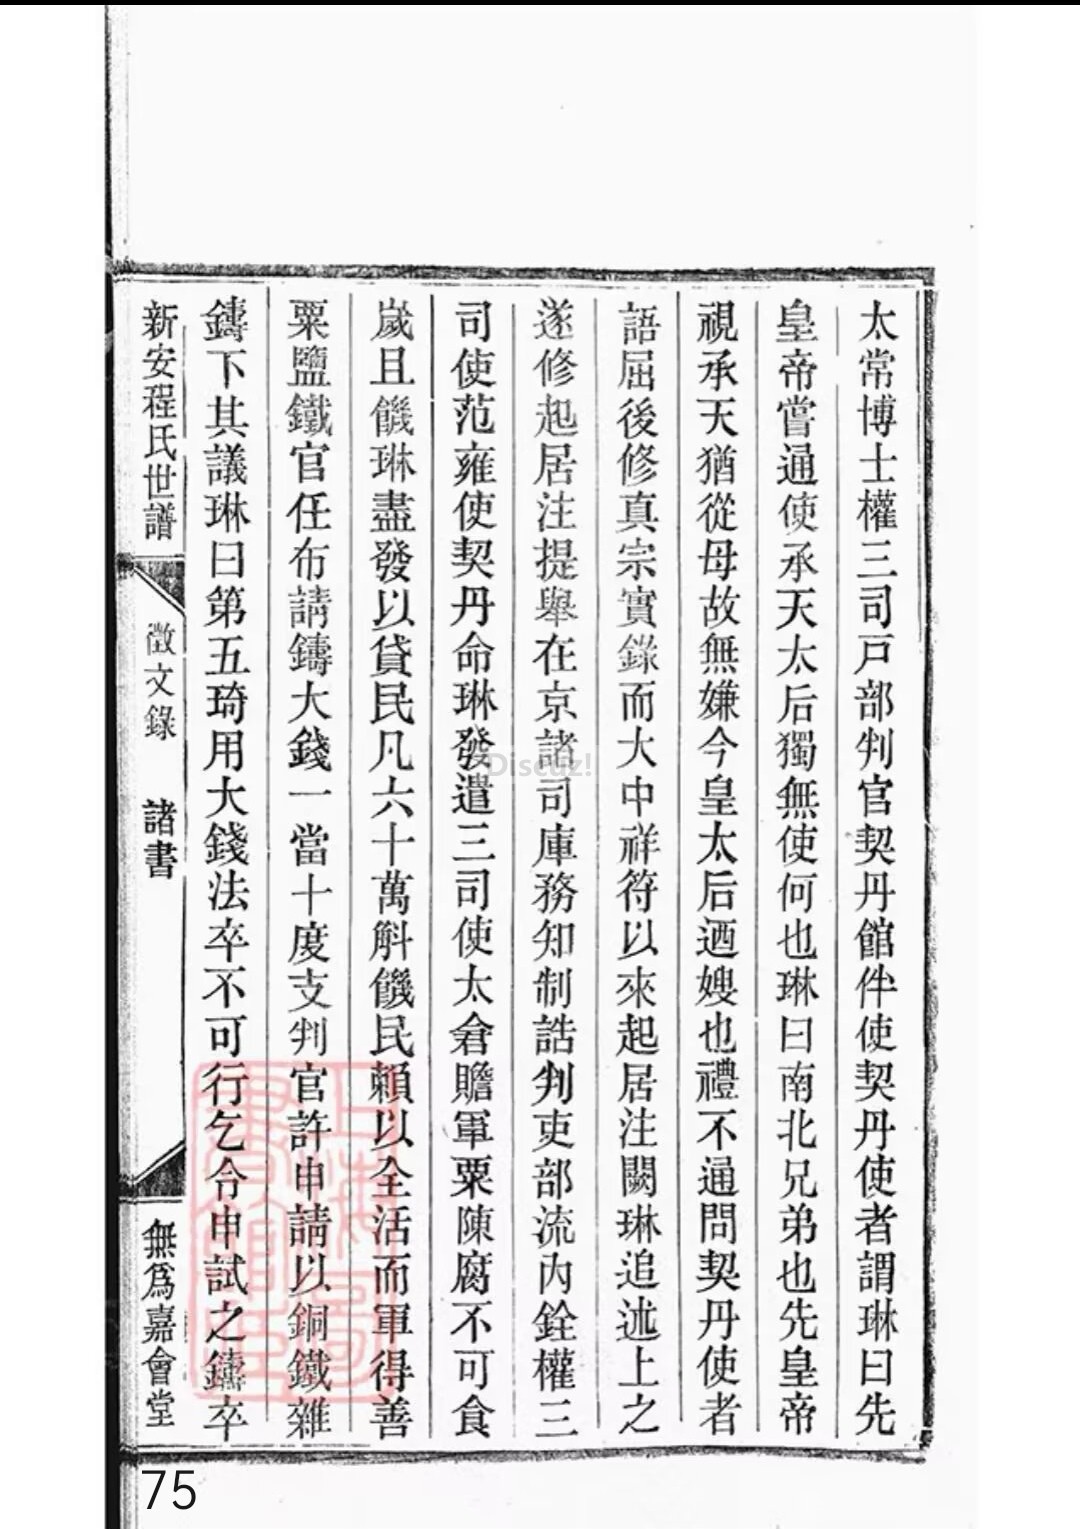 太常博士權三司戸部判官契丹館伴使契丹使者謂琳曰先
皇帝嘗通使承天太后獨無使何也琳曰南北兄弟也先皇帝
視承天猶從母故無嫌今皇太后迺嫂也禮不通問契丹使者
語屈後修真宗實錄而大中祥符以來起居注闕琳追述上之
遂修起居注提舉在京諸司庫務知制誥判吏部流內銓權三
司使范雍使契丹命琳發遣三司使太倉贍軍粟陳腐不可食
歲且饑琳盡發以貸民凡六十萬斛饑民賴以全活而軍得善
粟鹽鐵官任布請鑄大錢一當十度支判官許申請以銅鐵雜
鑄下其議琳曰第五琦用大錢法卒不可行乞令申試之鑄卒
新安程氏世譜
徵文錄
諸書
無爲嘉會堂
上海圖書館藏
Discuz!
75